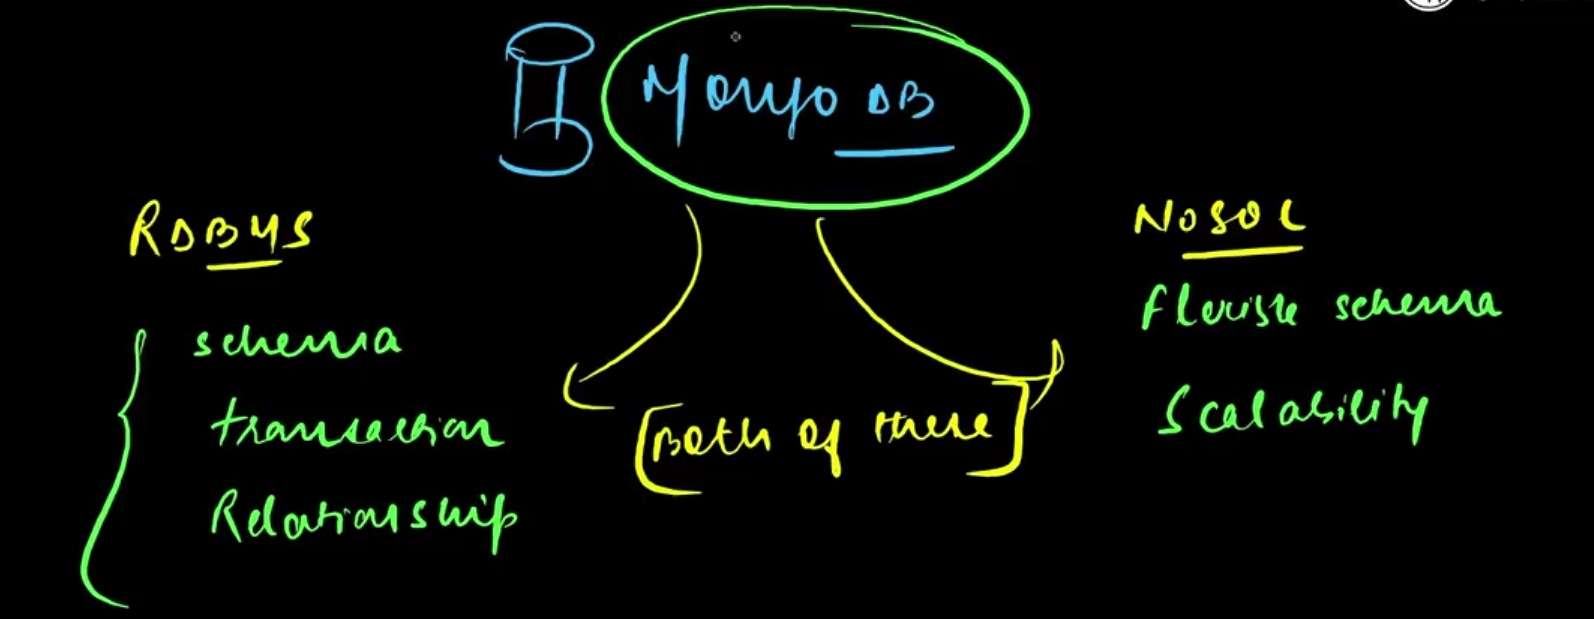 Mongo DB
RDBMS
schema
transaction
Relationship
[Both of these]
NOSQL
flexible schema
Scalability